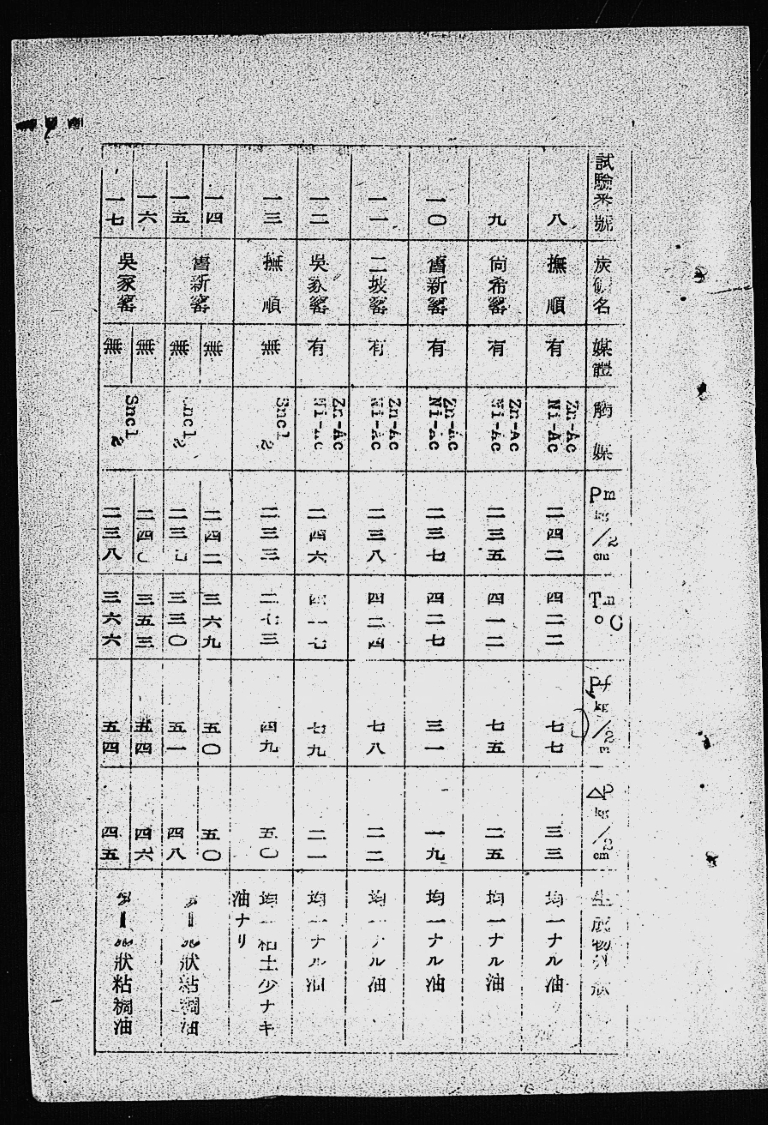 試驗番號 八 九 一〇 一一 一二 一三 一四 一五 一六 一七
炭礦名 撫順 尙希窰 舊新窰 二坡窰 吳家窰 撫順 舊新窰 吳家窰
媒體 有 有 有 有 有 無 無 無 無 無
觸媒 Zn-Ac Ni-Ac Zn-Ac Ni-Ac Zn-Ac Ni-Ac Zn-Ac Ni-Ac Zn-Ac Ni-Ac Sncl₂ ncl₂ Sncl₂
Pm kg/cm² 二四二 二三五 二三七 二三八 二四六 二三三 二四二 二三七 二四〇 二三八
Tm °C 四二二 四一二 四二七 四二四 四一七 三六九 三三〇 三五三 三六六
Pf kg/cm² 七七 七五 三一 七八 七九 四九 五〇 五一 五四 五四
△P kg/cm² 三三 二五 一九 二二 二一 五〇 五〇 四八 四六 四五
生成物 均一ナル油 均一ナル油 均一ナル油 均一ナル油 均一ナル油 均一粘土少ナキ油ナリ タール狀粘稠油 タール狀粘稠油